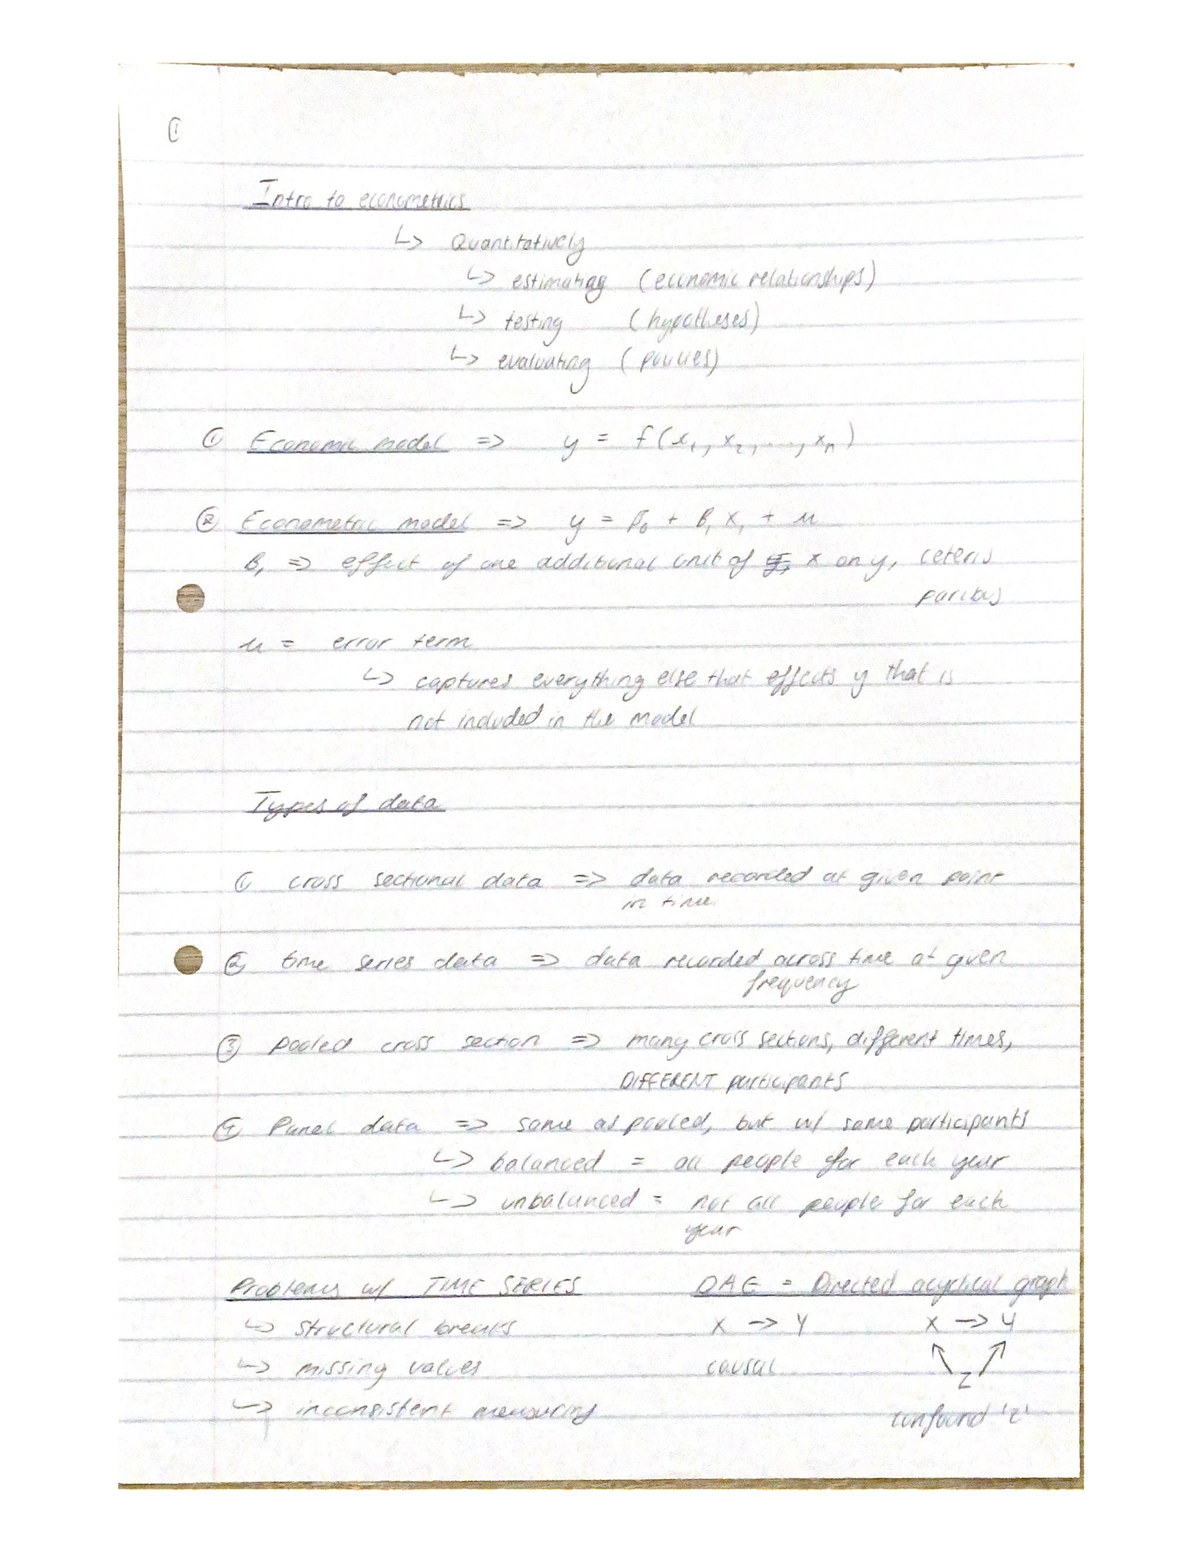 ①
Intro to econometrics
↳ Quantitatively
↳ estimating (economic relationships)
↳ testing (hypotheses)
↳ evaluating (policies)
① Economic model => y = f(x₁, x₂, ..., xₙ)
② Econometric model => y = β₀ + β₁ x₁ + u
β₁ => effect of one additional unit of x on y, ceteris
paribus
u = error term
↳ captures everything else that effects y that is
not included in the model
Types of data
① cross sectional data => data recorded at given point
in time
② time series data => data recorded across time at given
frequency
③ pooled cross section => many cross sections, different times,
DIFFERENT participants
④ Panel data => same as pooled, but w/ same participants
↳ balanced = all people for each year
↳ unbalanced = not all people for each
year
Problems w/ TIME SERIES DAG = Directed acyclical graph
↳ structural breaks X -> Y X -> Y
↳ missing values causal Z
↳ inconsistent measuring confound 'z'